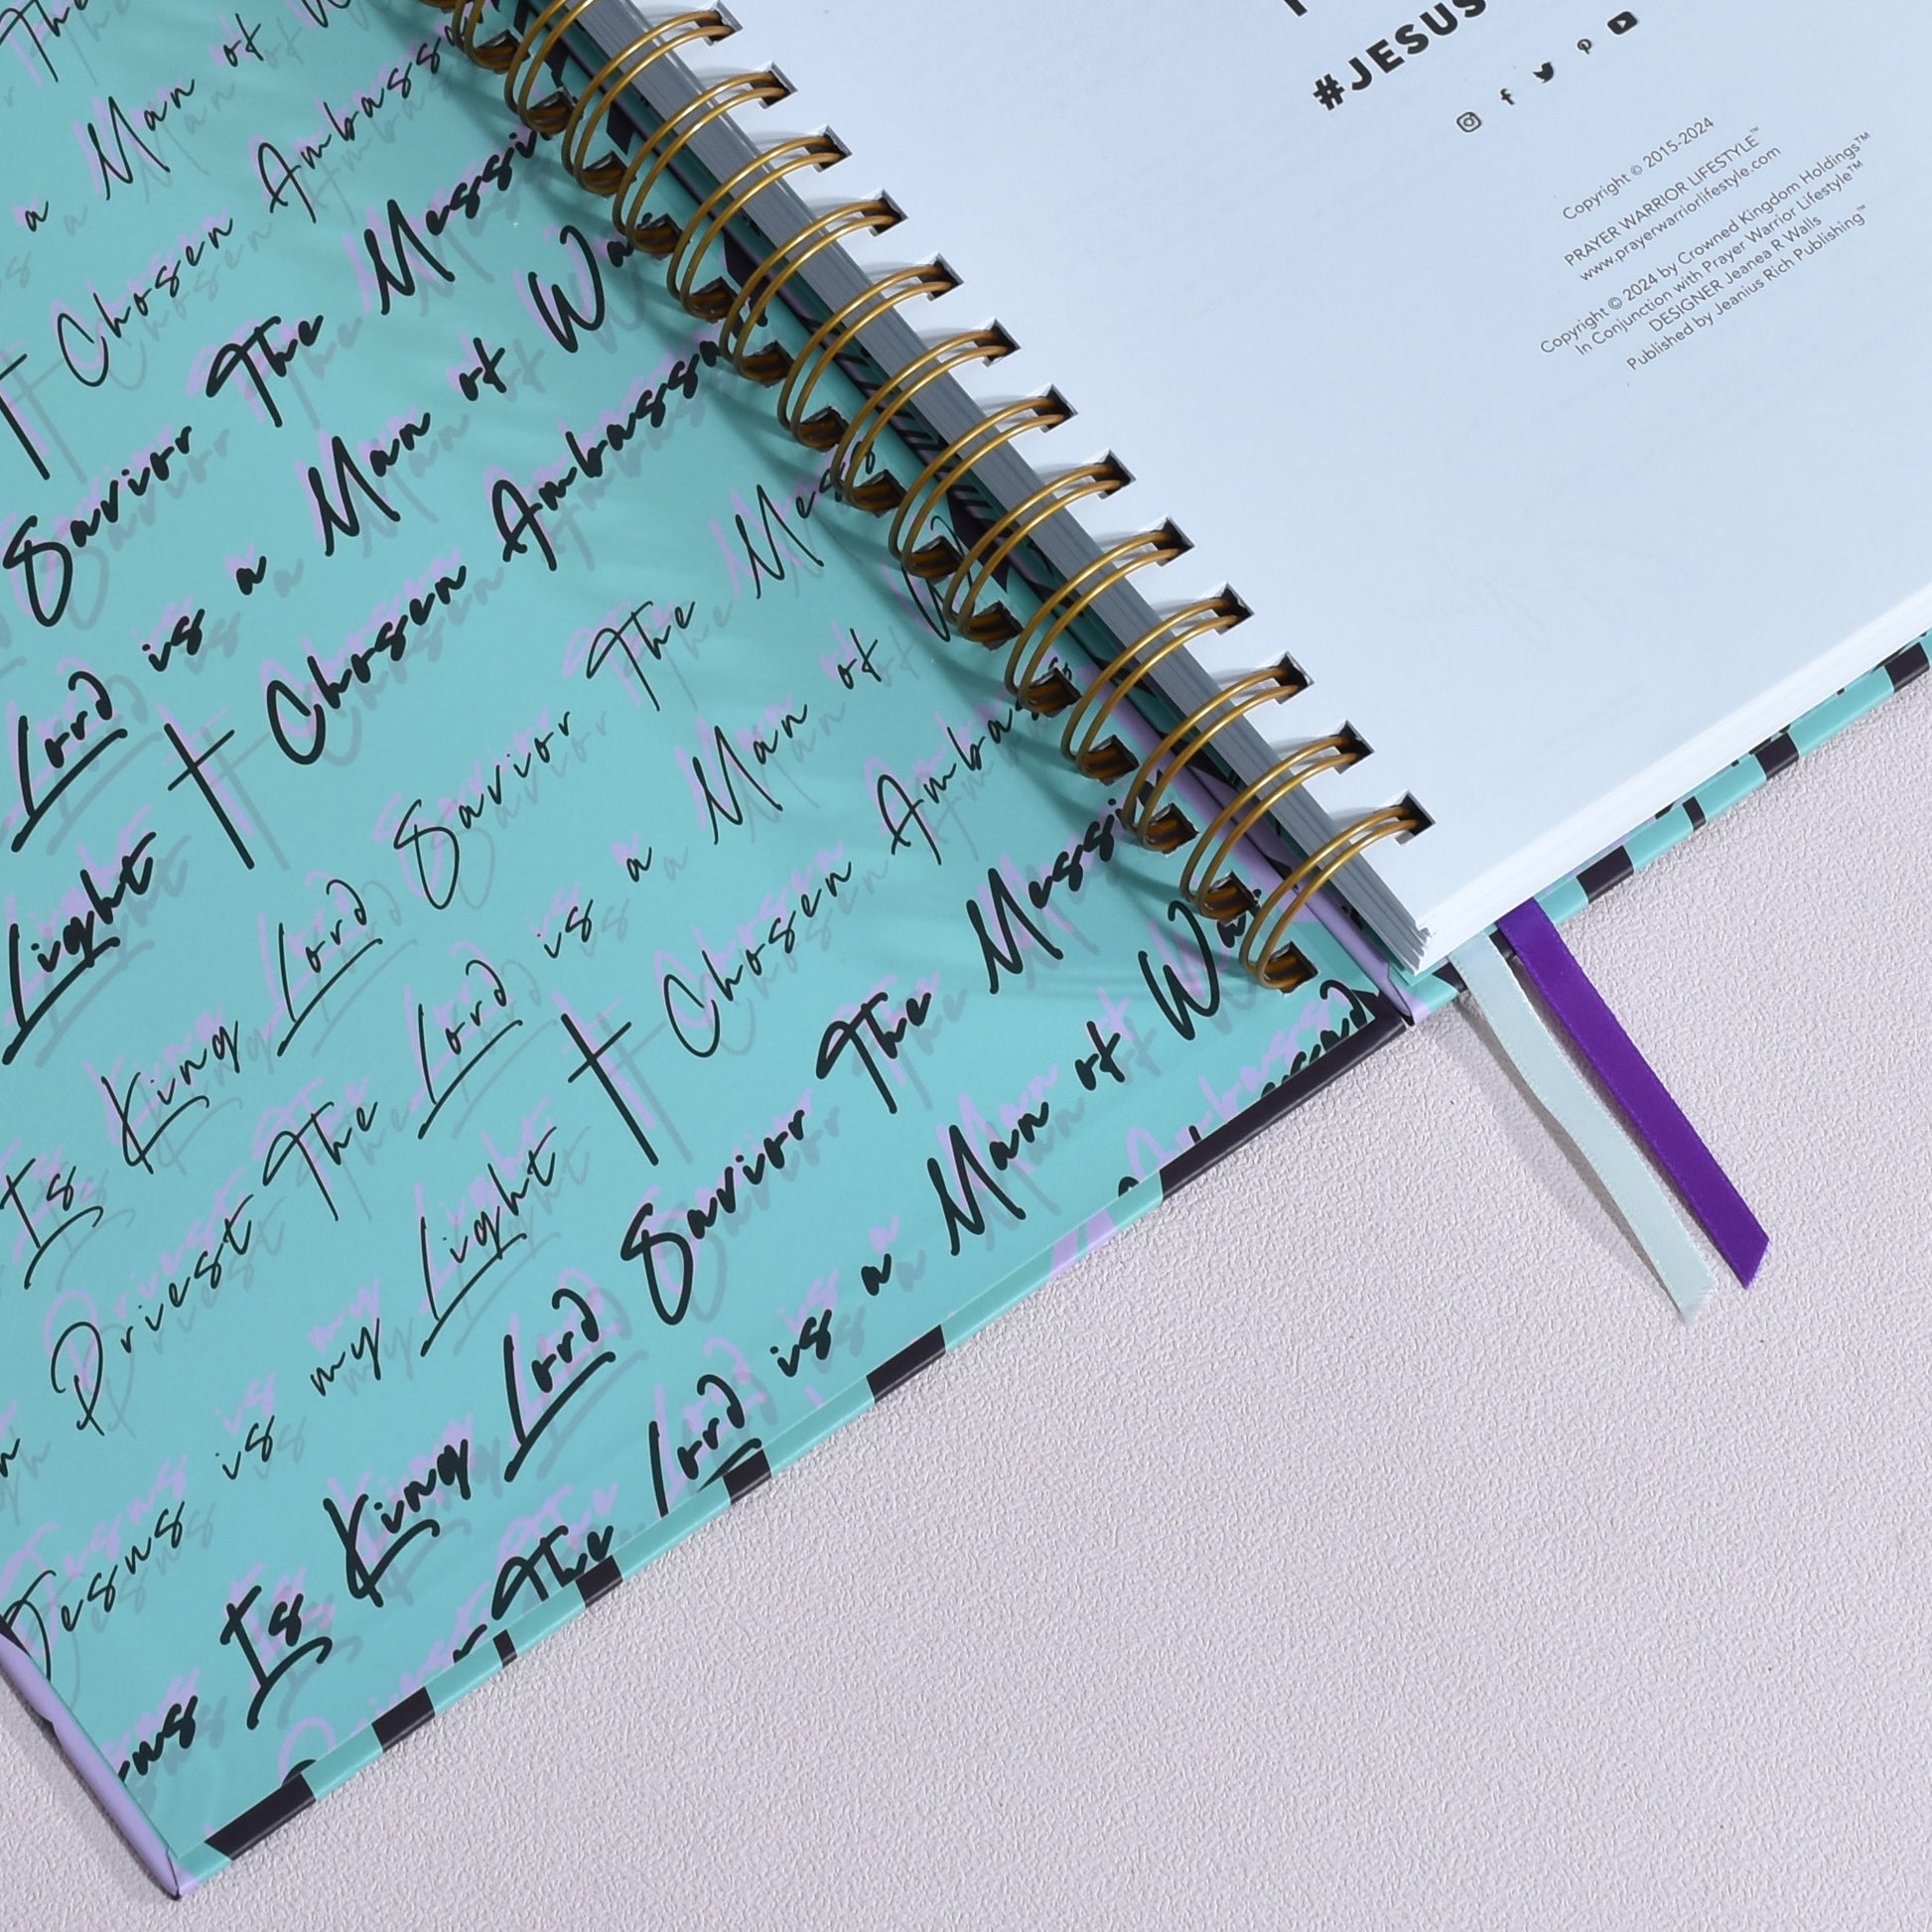 a Man of
† Chosen Ambass
Savior The Messi
Lord is a Man of Wa
Light † Chosen Ambassa
Is King Lord Savior The Mes
Priest The Lord is a Man of
Jesus is my Light † Chosen Ambas
Is King Lord Savior The Messi
The Lord is a Man of Wa
#JESUS
Copyright © 2015-2024
PRAYER WARRIOR LIFESTYLE™
www.prayerwarriorlifestyle.com
Copyright © 2024 by Crowned Kingdom Holdings™
In Conjunction with Prayer Warrior Lifestyle™
DESIGNER Jeanea R Walls
Published by Jeanius Rich Publishing™